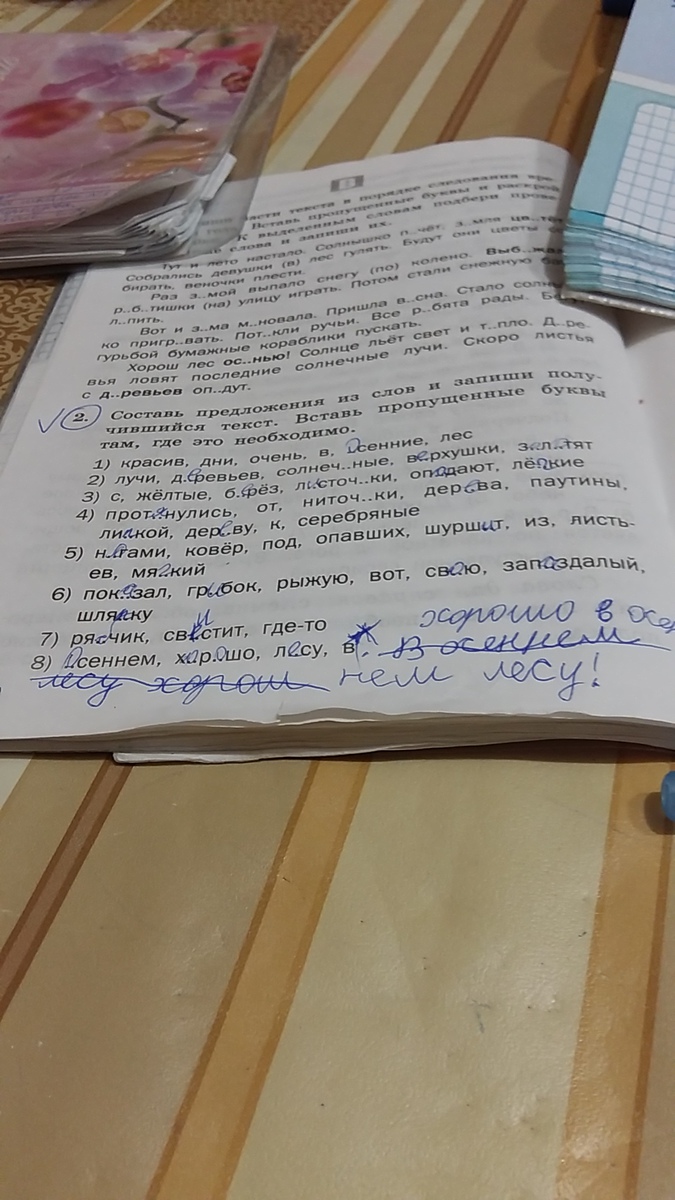 В
части текста в порядке следования вре-
Вставь пропущенные буквы и раскрой
К выделенным словам подбери прове-
слова и запиши их.
Тут и лето настало. Солнышко п..чёт, з..мля цв..тёт
Собрались девушки (в) лес гулять. Будут они цветы
бирать, веночки плести.
Раз з..мой выпало снегу (по) колено. Выб..жал
р..б..тишки (на) улицу играть. Потом стали снежную
л..пить.
Вот и з..ма м..новала. Пришла в..сна. Стало солн
ко пригр..вать. Пот..кли ручьи. Все р..бята рады.
гурьбой бумажные кораблики пускать.
Хорош лес ос..нью! Солнце льёт свет и т..пло. Д..ре-
вья ловят последние солнечные лучи. Скоро листья
с д..ревьев оп..дут.
2. Составь предложения из слов и запиши полу-
чившийся текст. Вставь пропущенные буквы
там, где это необходимо.
1) красив, дни, очень, в, осенние, лес
2) лучи, деревьев, солнеч..ные, верхушки, зол..тят
3) с, жёлтые, берёз, листоч..ки, опадают, лёгкие
4) протянулись, от, ниточ..ки, дерева, паутины,
липкой, дереву, к, серебряные
5) ногами, ковёр, под, опавших, шуршит, из, листь-
ев, мягкий
6) показал, грибок, рыжую, вот, свою, запоздалый,
шляпку
7) рябчик, свистит, где-то
хорошо в осе
8) Осеннем, хорошо, лесу, в. В осеннем
лесу хорош нем лесу!